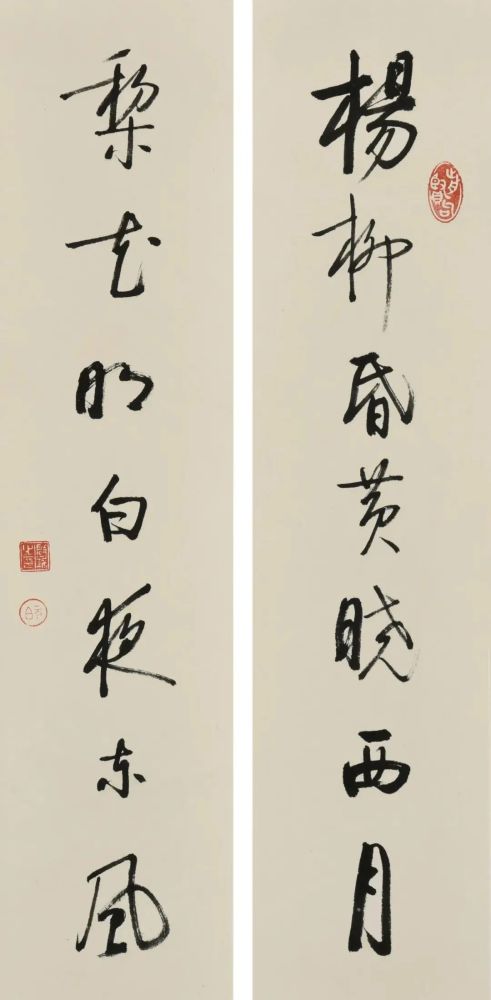 楊柳昏黄曉西月
梨花明白夜东風